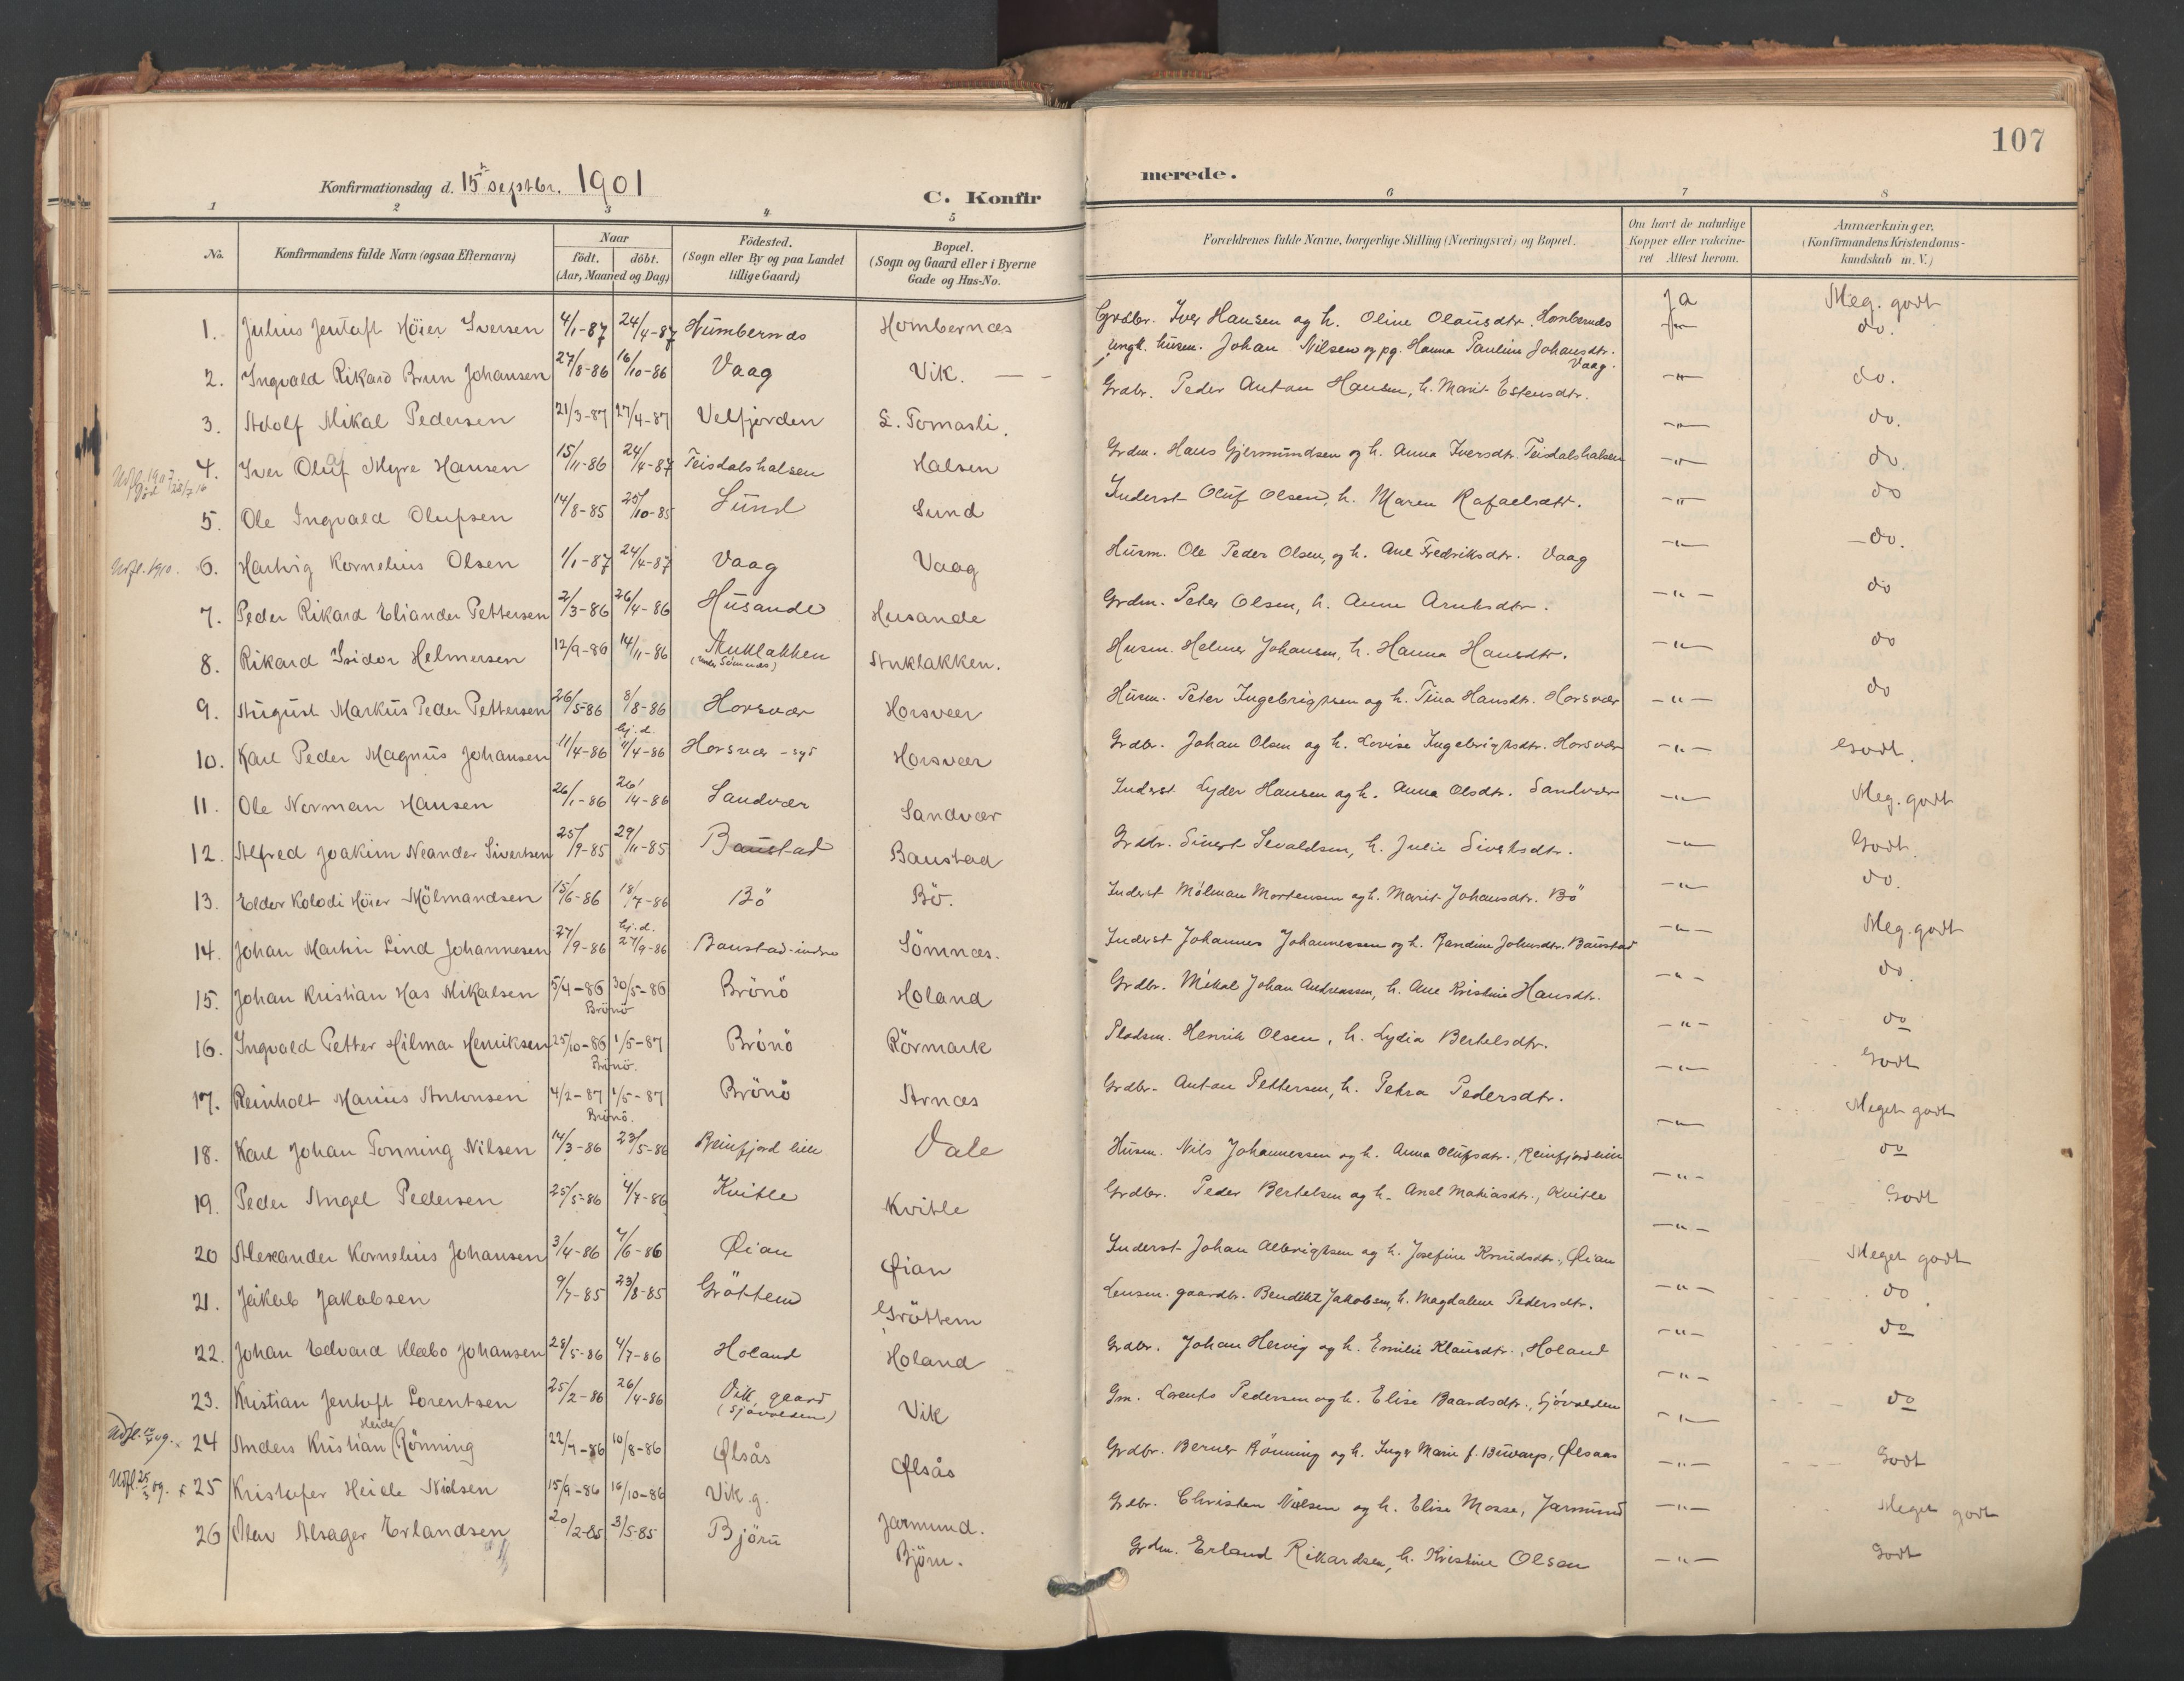 107
Konfirmationsdag d. 15 septbr. 1901
C. Konfirmerede.
1 2 3 4 5 6 7 8
No. Konfirmandens fulde Navn (ogsaa Efternavn) Naar födt. döbt. (Aar, Maaned og Dag) Födested. (Sogn eller By og paa Landet tillige Gaard) Bopæl. (Sogn og Gaard eller i Byerne Gade og Hus-No. Forældrenes fulde Navne, borgerlige Stilling (Næringsvei) og Bopæl. Om havt de naturlige Kopper eller vakcineret Attest herom. Anmærkninger. (Konfirmandens Kristendomskundskab m. V.)
1. Julius Jentoft Höier Iversen 4/1-87 24/4-87 Humbernæs Hombernæs Grdbr. Iver Hansen og h. Oline Olausdtr. Hombernæs Ja Meg. godt
2. Ingvald Rikard Brun Johansen 27/8-86 16/10-86 Vaag Vik. — - Ungk. husm. Johan Nilsen og pg. Hanna Pauline Johansdtr. Vaag. —"— do.
3. Adolf Mikal Pedersen 21/3-87 27/4-87 Velfjorden L. Tomasli. Grdbr. Peder Antan Hansen, h. Marit Estensdtr. —"— do.
4. Iver Oluf Myre Hansen 15/11-86 24/4-87 Teisdalshalsen Halsen Grdm. Hans Gjermundsen og h. Anna Iversdtr. Teisdalshalsen —"— do.
5. Ole Ingvald Olufsen 14/8-85 25/10-85 Sund Sund Inderst Oluf Olsen, h. Maren Rafaelsdtr. —"— do
Udfl. 1910. 6. Hartvig Kornelius Olsen 1/1-87 24/4-87 Vaag Vaag Husm. Ole Peder Olsen, og h. Ane Fredriksdtr. Vaag —"— do.
7. Peder Rikard Eliander Pettersen 2/3-86 26/4-86 Husande Husande Grdm. Peter Olsen, h. Anne Arntsdtr. —"— do
8. Rikard Isidor Helmersen 12/9-86 14/11-86 Anklakken (under Sömnæs) Anklakken. Husm. Helmer Johansen, h. Hanna Hansdtr. —"— do
9. August Markus Peder Pettersen 26/5-86 8/8-86 Horsvær Horsvær Husm. Peter Ingebrigtsen og h. Tina Hansdtr. Horsvær —"— do
10. Karl Peder Magnus Johansen 11/4-86 hj.d. 11/4-86 Horsvær - syd Horsvær Grdbr. Johan Olsen og h. Lovise Ingebrigtsdtr. Horsvær —"— Godt.
11. Ole Norman Hansen 26/1-86 26/4-86 Sandvær Sandvær Inderst Lyder Hansen og h. Anna Olsdtr. Sandvær —"— Meg. godt
12. Alfred Joakim Neander Sivertsen 25/9-85 29/11-85 Baustad Baustad Grdbr. Sivert Sevaldsen, h. Julie Sivertsdtr. —"— Godt.
13. Elder Kolodi Höier Mölmandsen 15/6-86 18/7-86 Bö Bö. Inderst Mölman Mortensen og h. Marit Johansdtr. Bö —"— do.
14. Johan Martin Lind Johannesen 27/9-86 hj.d. 27/9-86 Baustad-indre Sömnæs. Inderst Johannes Johannessen og h. Randine Johnsdtr. Baustad —"— Meg. godt
15. Johan Kristian Has Mikalsen 5/4-86 30/5-86 Brönö Brönö Holand Grdbr. Mikal Johan Andreassen, h. Ane Kristine Hansdtr. —"— do.
16. Ingvald Petter Hilmar Henriksen 25/10-86 1/5-87 Brönö. Brönö Rörmark Pladsm. Henrik Olsen, h. Lydia Bertelsdtr. —"— do
17. Reinholt Marius Antonsen 4/2-87 1/5-87 Brönö. Brönö Arnæs Grdbr. Antan Pettersen, h. Petra Pedersdtr. —"— Godt
18. Karl Johan Tonning Nilsen 14/3-86 23/5-86 Reinfjord lille Vale Husm. Nils Johannessen og h. Anna Olufsdtr., Reinfjord lille —"— Meget godt
19. Peder Angel Pedersen 25/5-86 4/7-86 Kvitle Kvitle Grdbr. Peder Bertelsen og h. Anel Matiasdtr., Kvitle —"— do
20 Alexander Kornelius Johansen 3/4-86 /6-86 Øian Øian Inderst Johan Albrigtsen og h. Josefine Knudsdtr., Øian —"— Godt
21. Jakob Jakobsen 9/7-85 23/8-85 Gröttem Gröttem Lensm. gaardbr. Benedikt Jakobsen, h. Magdalene Pedersdtr. —"— Meget godt
22. Johan Edvard Klæbo Johansen 28/5-86 4/7-86 Holand Holand Grdbr. Johan Hervig og h. Emilie Klausdtr., Holand —"— do
23. Kristian Jentoft Lorentsen 25/2-86 26/4-86 Vik gaard (Sjövolden) Vik Gm. Lorents Pedersen og h. Elise Baardsdtr., Sjövolden —"— do
24 Anders Kristian Heide Rönning 22/7-86 10/8-86 Ølsås Ølsås Grdbr. Berner Rönning og h. Inger Marie f. Buvarp, Ølsaas —"— do
25 Kristofer Heide Nielsen 15/9-86 16/10-86 Vik g. Jarmund. Grdbr. Christen Nielsen og h. Elise Mosse, Jarmund —"— Meget godt
26 Olav Alsager Erlandsen 20/2-85 3/5-85 Björn Björn. Grdm. Erland Rikardsen, h. Kristine Olsen —"— Godt